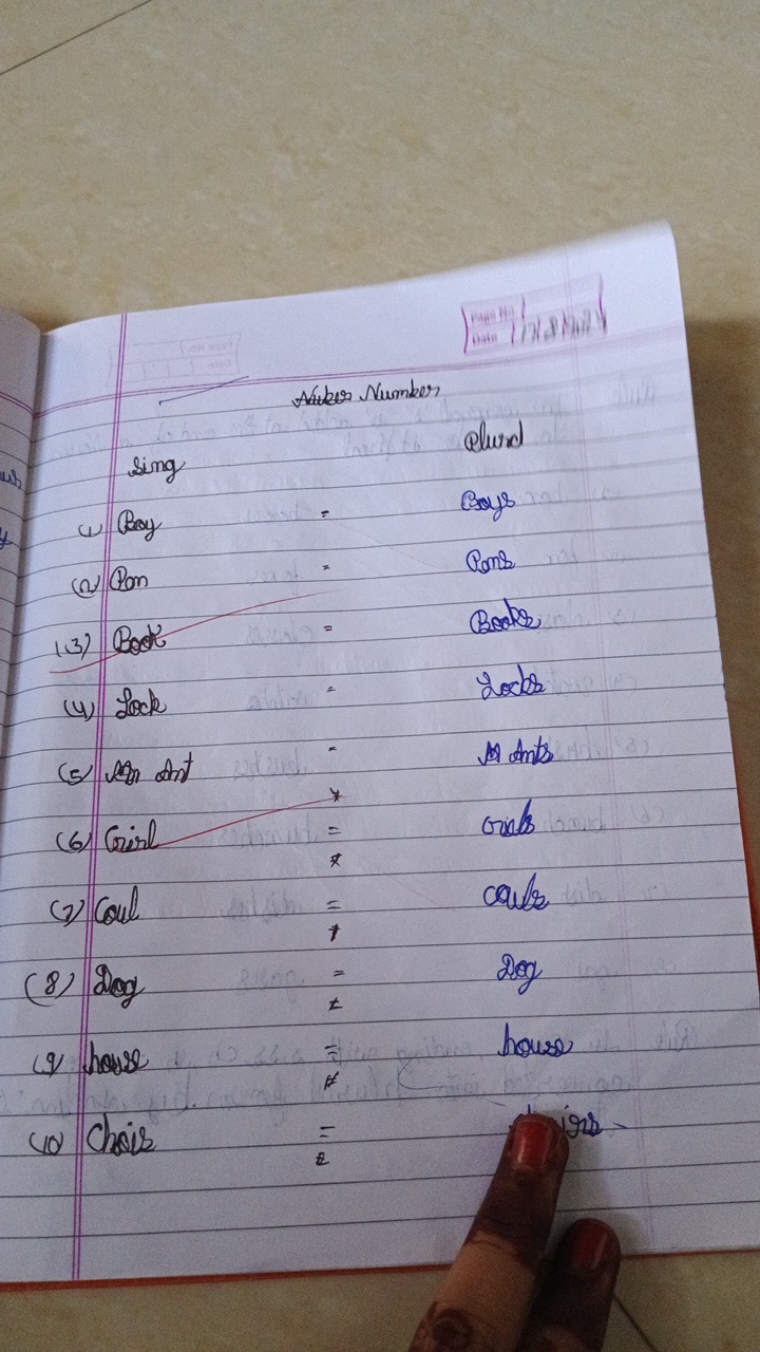 Page No.
Date
Number
Sing Plural
(1) Boy = Boys
(2) Pen = Pens
(3) Book = Books
(4) Lock = Locks
(5) Ant = Ants
(6) Girl = Girls
(7) Coul = couls
(8) Dog = Dog
(9) house = house
(10) Chair =